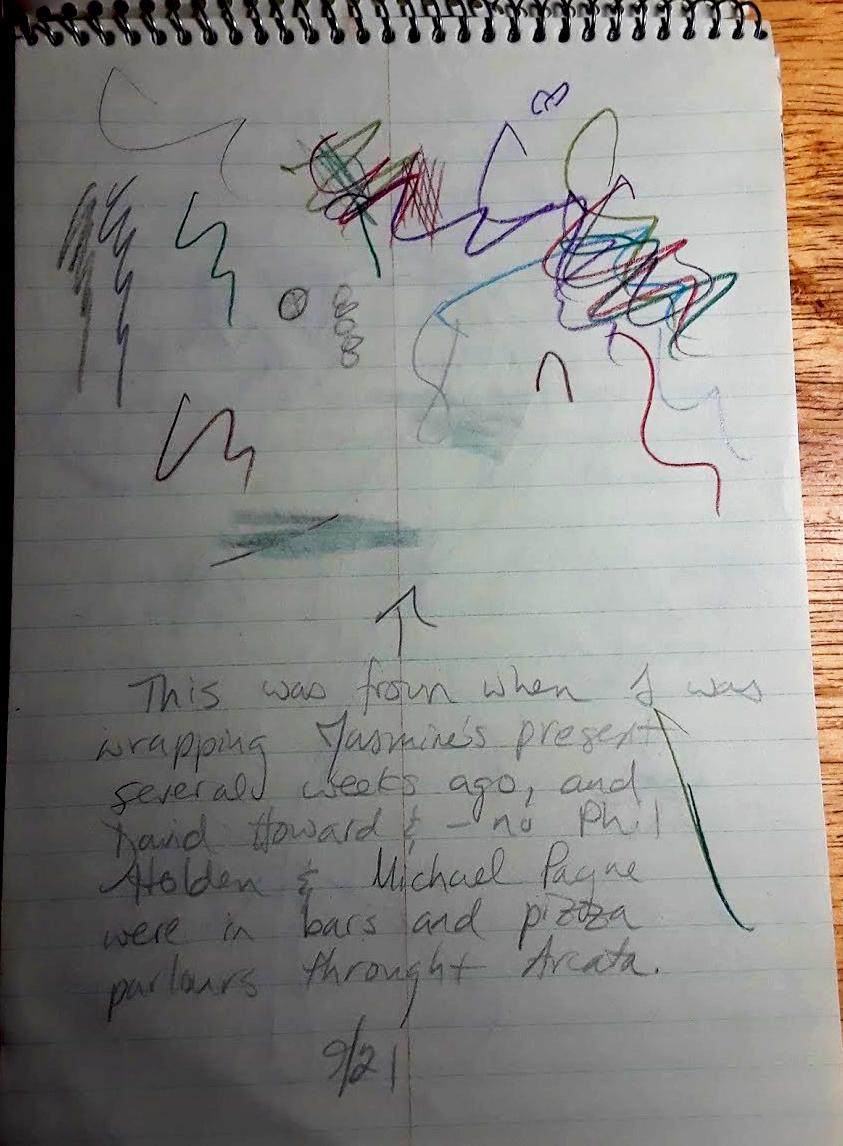 This was from when I was
wrapping Yasmine's present
several weeks ago, and
David Howard & - no Phil
Holden & Michael Payne
were in bars and pizza
parlours throught Arcata.
9/21